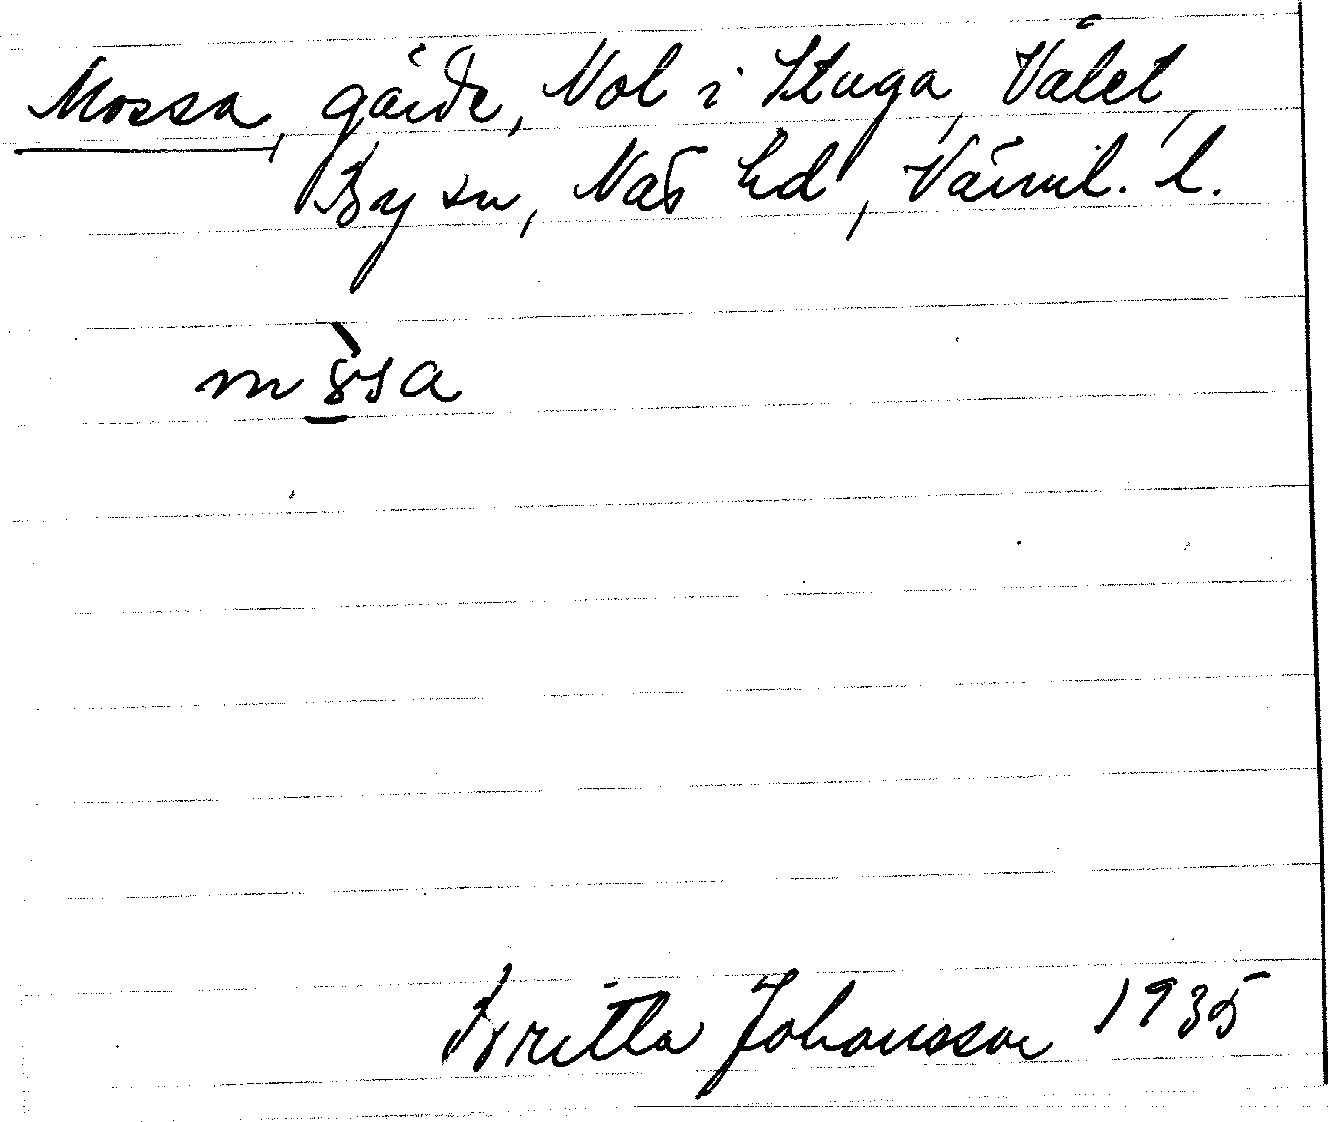 Mossa, gärde, Nol i Stuga, Vålet,
By sn, Näs hd, Värml. l.
mòsa
Britta Johansson 1935